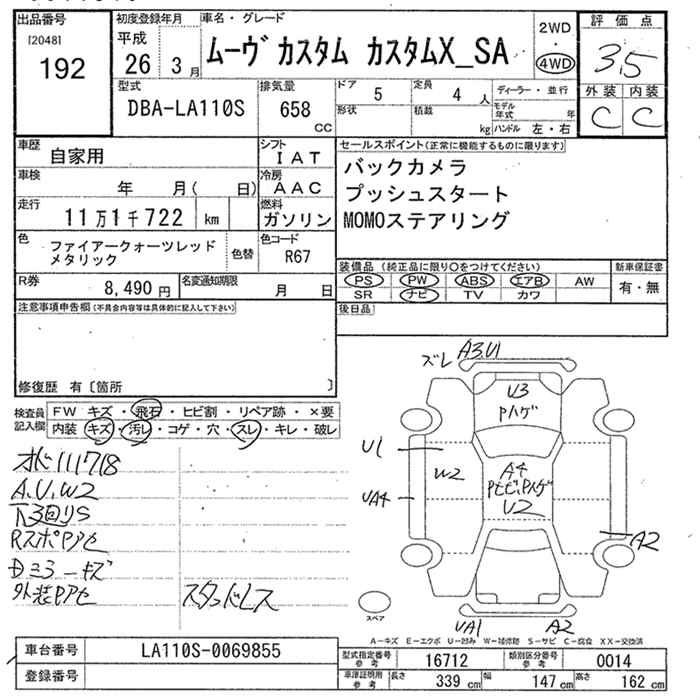 出品番号
[2048]
192
初度登録年月
平成
26 3月
車名・グレード
ムーヴ カスタム カスタムX_SA
2WD
・
4WD
評価点
3.5
外装 内装
C C
型式
DBA-LA110S
排気量
658
CC
ドア 5
形状
定員 4 人
積載 kg
ディーラー・並行
モデル年式 年
ハンドル 左・右
車歴
自家用
シフト
IAT
車検
年 月( 日)
冷房
AAC
走行
11万1千722 km
燃料
ガソリン
色
ファイアークォーツレッド
メタリック
色替
色コード
R67
R券
8,490円
名変通知期限
月 日
セールスポイント(正常に機能するものに限ります)
バックカメラ
プッシュスタート
MOMOステアリング
装備品(純正品に限り○をつけてください)
PS PW ABS エアB AW
SR ナビ TV カワ
新車保証書
有・無
後日品
注意事項申告欄(不具合内容等は具体的に記入して下さい)
修復歴 有〔箇所 〕
検査員
記入欄
FW キズ・飛石・ヒビ割・リペア跡・×要
内装 キズ・汚レ・コゲ・穴・スレ・キレ・破レ
111718
A.U.W2
下3回りS
RスポPアセ
キズ
外装Pアセ
スタッドレス
ズレ A3.U1
U3
Pハゲ
U1
W2
UA4
A4
Pヒビ.Pハゲ
U2
A2
UA1 A2
スペア
A-キズ E-エクボ U-凹み W-補修跡 S-サビ C-腐食 XX-交換済
車台番号
LA110S-0069855
登録番号
型式指定番号
参考
16712
類別区分番号
参考
0014
車庫証明用
参考
長さ 339 cm
幅 147 cm
高さ 162 cm